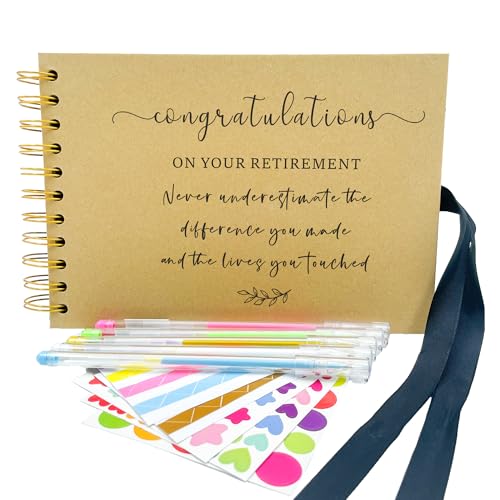 congratulations
ON YOUR RETIREMENT
Never underestimate the
difference you made
and the lives you touched